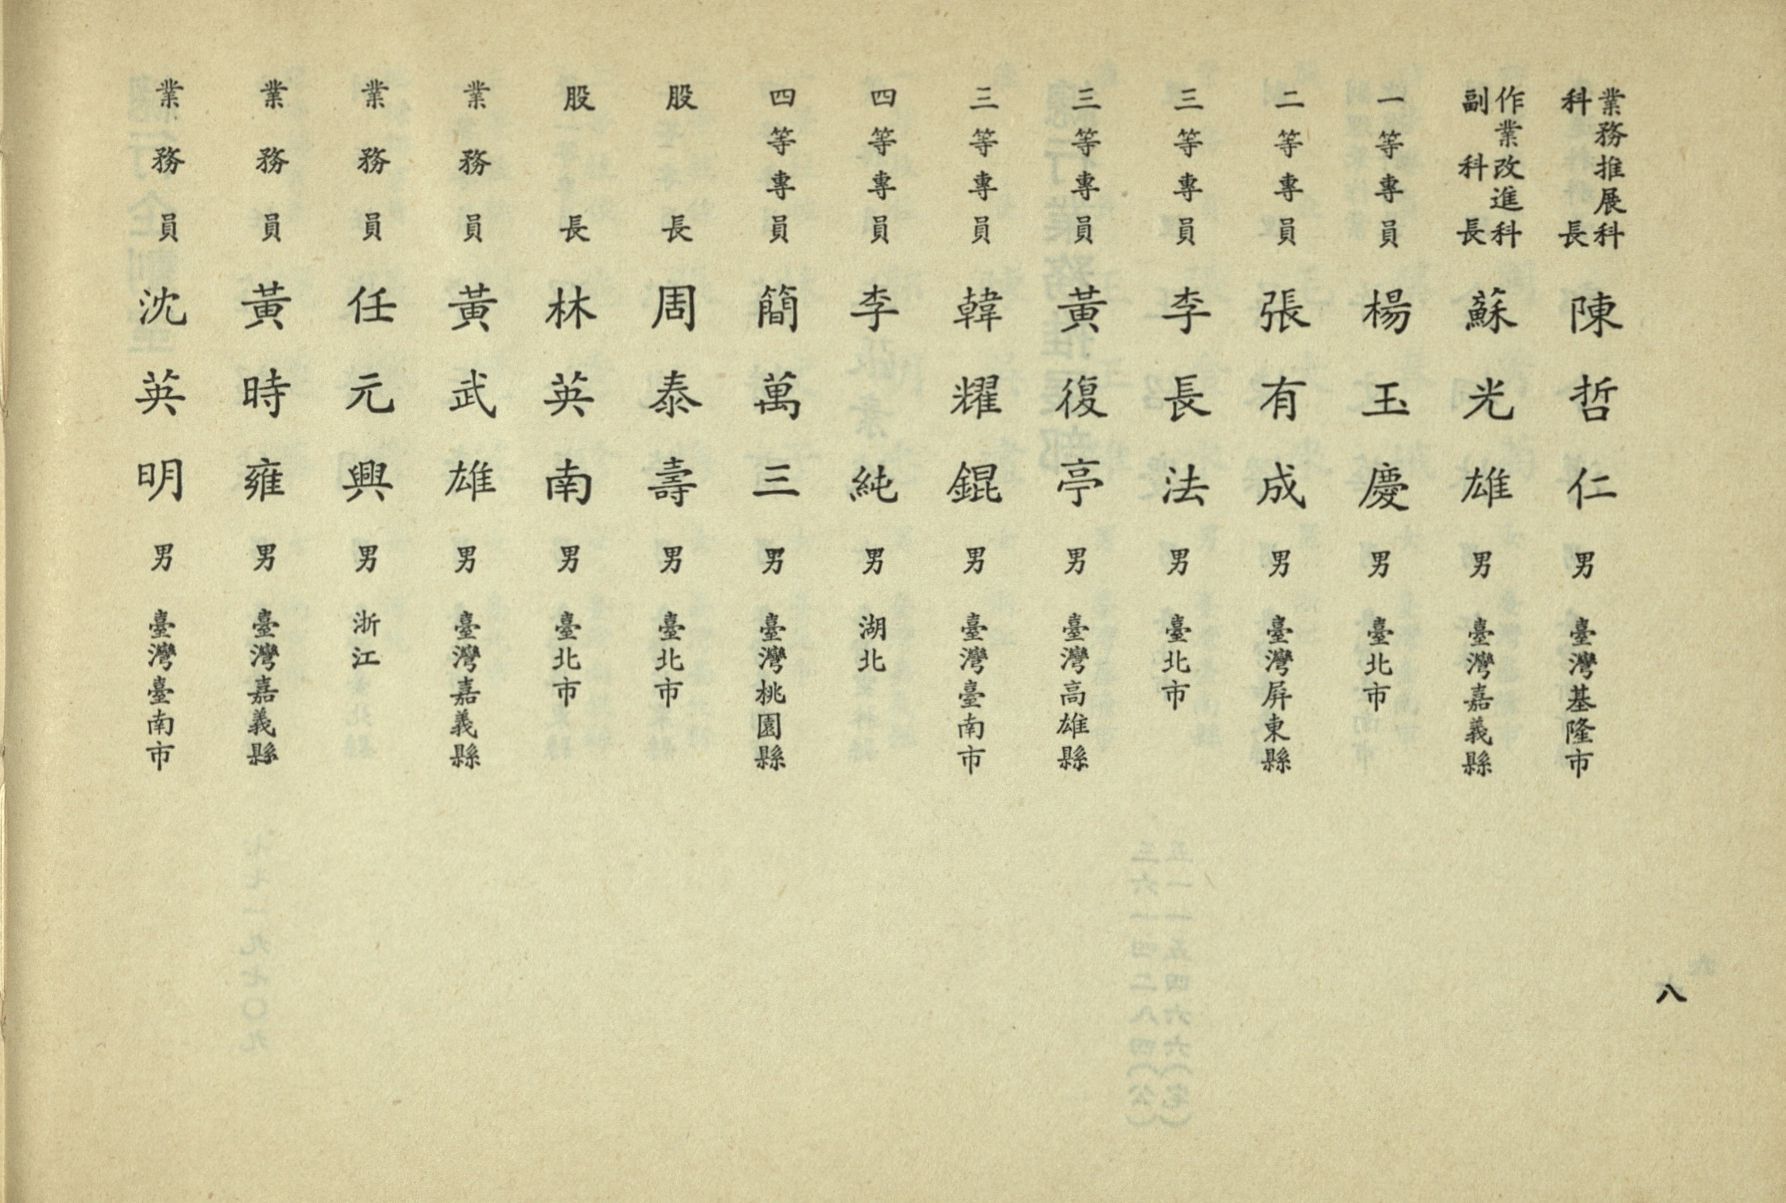 業務推展科科長 陳哲仁 男 臺灣基隆市
作業改進科副科長 蘇光雄 男 臺灣嘉義縣
一等專員 楊玉慶 男 臺北市
二等專員 張有成 男 臺灣屏東縣
三等專員 李長法 男 臺北市
三等專員 黃復亭 男 臺灣高雄縣
三等專員 韓耀錕 男 臺灣臺南市
四等專員 李純 男 湖北
四等專員 簡萬三 男 臺灣桃園縣
股長 周泰壽 男 臺北市
股長 林英南 男 臺北市
業務員 黃武雄 男 臺灣嘉義縣
業務員 任元興 男 浙江
業務員 黃時雍 男 臺灣嘉義縣
業務員 沈英明 男 臺灣臺南市
八